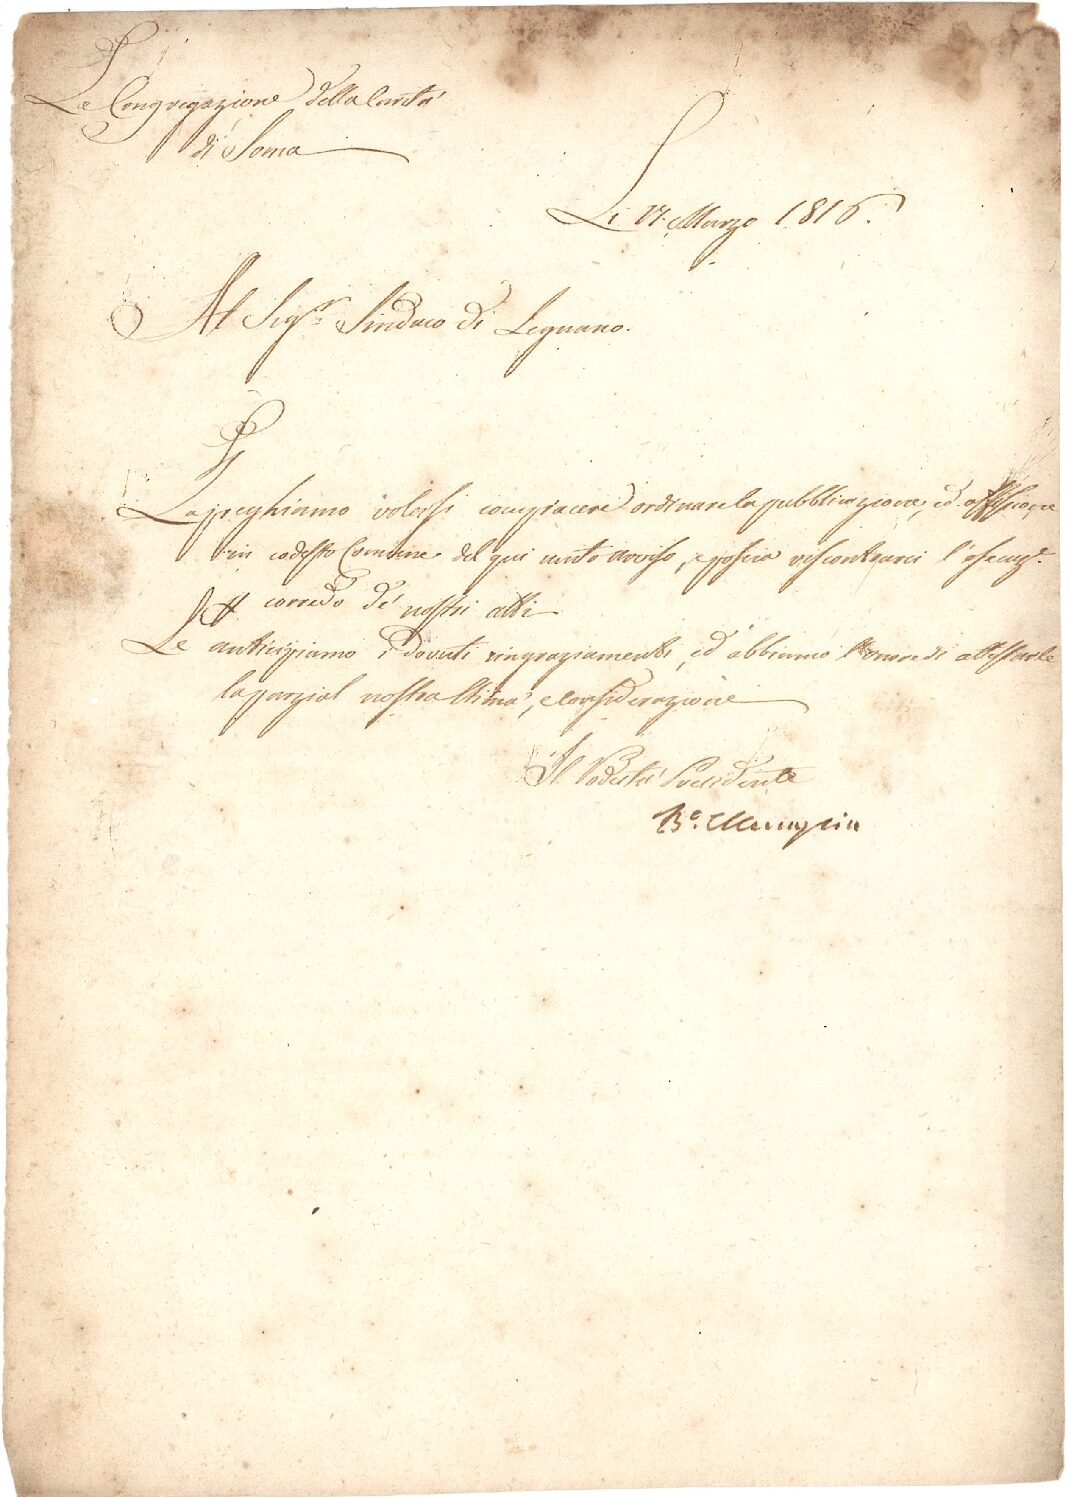 La Congregazione della Carità
di Soma
Li 17. Marzo 1816.
Al Sigr. Sindaco di Legnano.
La preghiamo volersi compiacere ordinare la pubblicazione, ed affissione
in codesto Comune del qui unito avviso, e poscia riscontrarci l'
a corredo de' nostri atti
Le anticipiamo i dovuti ringraziamenti, ed abbiamo l'onore di attestarle
la parzial nostra stima, e considerazione
Il Podestà Presidente